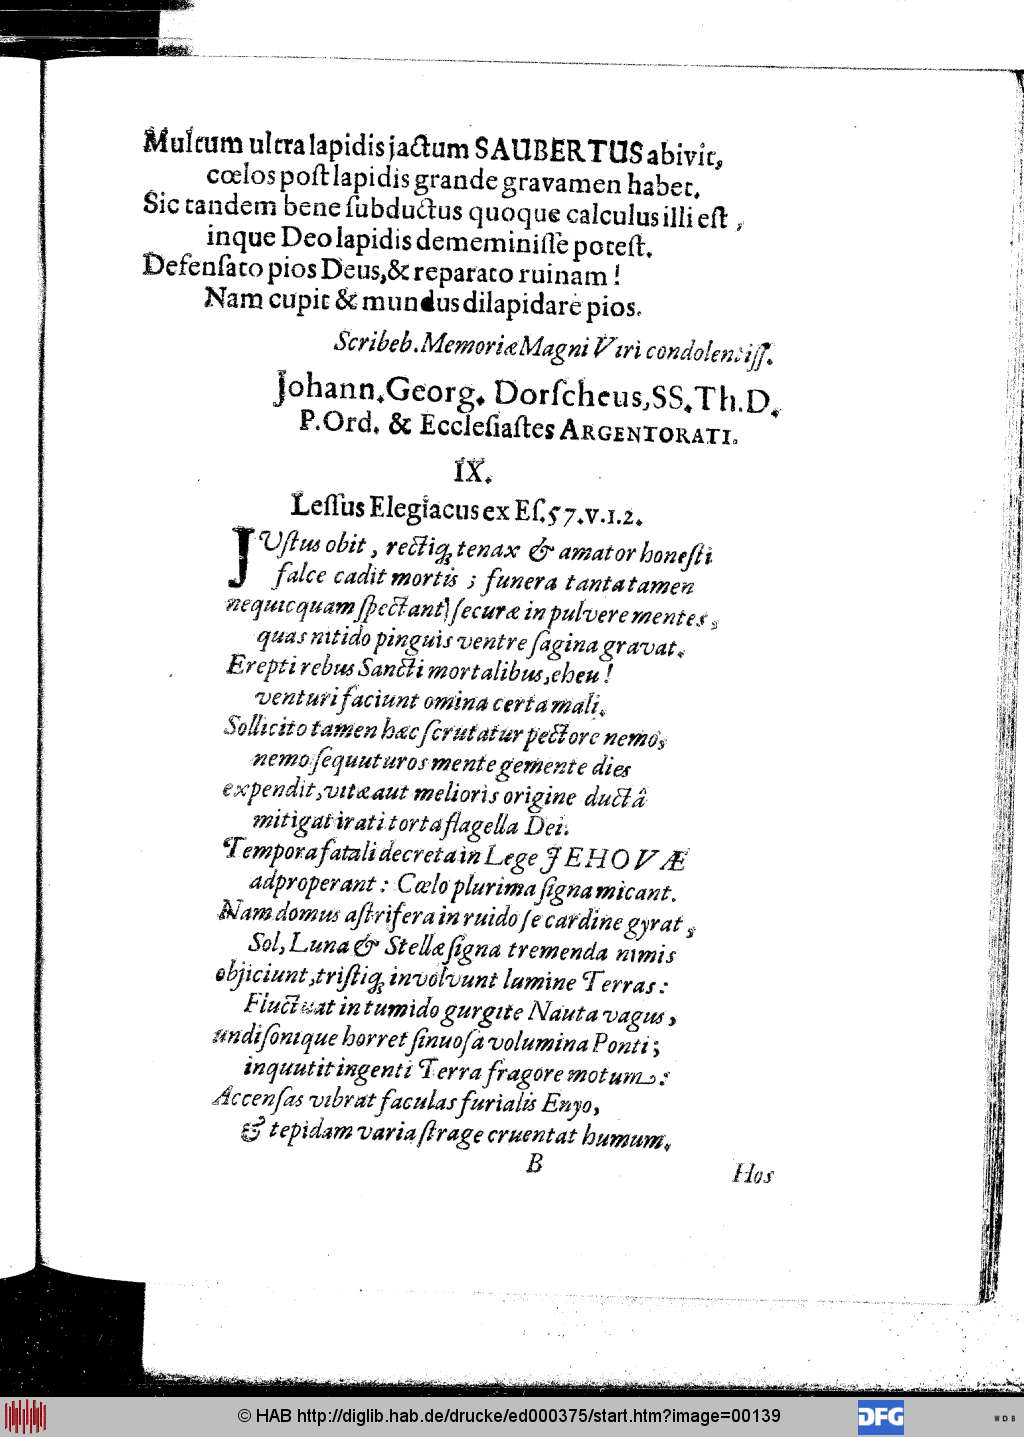 Multum ultra lapidis jactum SAUBERTUS abivit,
cœlos post lapidis grande gravamen habet.
Sic tandem bene ſubductus quoque calculus illi eſt,
inque Deo lapidis dememiniſſe poteſt.
Defenſato pios Deus, & reparato ruinam!
Nam cupit & mundus dilapidare pios.
Scribeb. Memoriæ Magni Viri condolentiſſ.
Johann. Georg. Dorſcheus, SS. Th. D.
P. Ord. & Eccleſiaſtes ARGENTORATI.
IX.
Leſſus Elegiacus ex Eſ. 57. v. 1. 2.
JUſtus obit, rectiq; tenax & amator honeſti
falce cadit mortis; funera tanta tamen
nequicquam ſpectant ſecuræ in pulvere mentes,
quas nitido pinguis ventre ſagina gravat.
Erepti rebus Sancti mortalibus, eheu!
venturi faciunt omina certa mali.
Sollicito tamen hæc ſcrutatur pectore nemo,
nemo ſequuturos mente gemente dies
expendit, vitæ aut melioris origine ductâ
mitigat irati torta flagella Dei.
Tempora fatali decreta in Lege JEHOVÆ
adproperant: Cœlo plurima ſigna micant.
Nam domus aſtrifera in ruido ſe cardine gyrat,
Sol, Luna & Stellæ ſigna tremenda nimis
objiciunt, triſtiq; involvunt lumine Terras:
Fluctuat in tumido gurgite Nauta vagus,
undiſonique horret ſinuoſa volumina Ponti;
inquutit ingenti Terra fragore motum:
Accenſas vibrat faculas furialis Enyo,
& tepidam varia ſtrage cruentat humum.
B
Hos
© HAB http://diglib.hab.de/drucke/ed000375/start.htm?image=00139
DFG
WDB